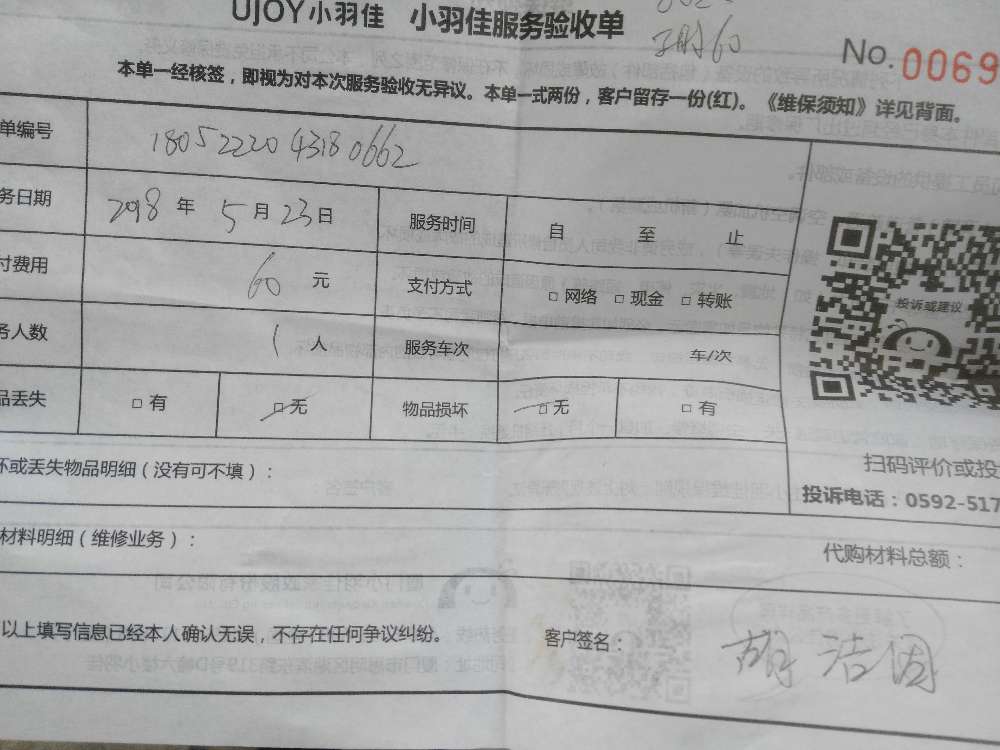 UJOY小羽佳 小羽佳服务验收单
60
No. 0069
本单一经核签，即视为对本次服务验收无异议。本单一式两份，客户留存一份(红)。《维保须知》详见背面。
单编号 18052220 43180662
务日期 2018 年 5 月 23 日 服务时间 自 至 止
付费用 60 元 支付方式 □ 网络 □ 现金 □ 转账
务人数 1 人 服务车次 车/次
品丢失 □ 有 □ 无 物品损坏 □ 无 □ 有
投诉或建议
扫码评价或投
投诉电话：0592-517
坏或丢失物品明细（没有可不填）：
材料明细（维修业务）： 代购材料总额：
以上填写信息已经本人确认无误，不存在任何争议纠纷。 客户签名：